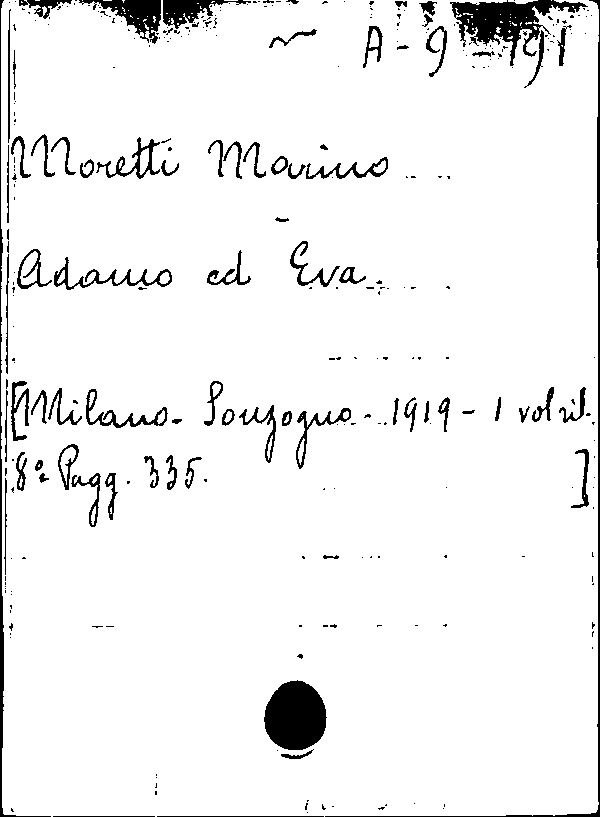 A-9-191
Moretti Marino
Adamo ed Eva.
[Milano - Sonzogno - 1919 - 1 vol ril.
8° Pagg. 335. ]